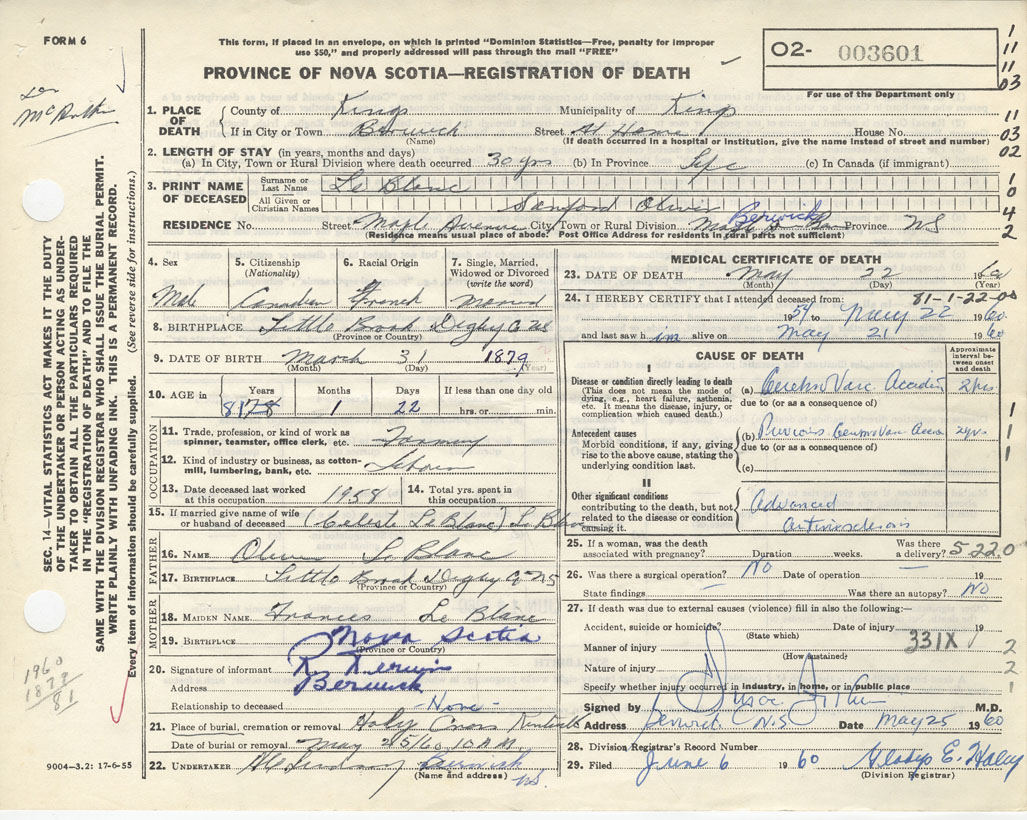 FORM 6
This form, if placed in an envelope, on which is printed "Dominion Statistics—Free, penalty for improper
use $50," and properly addressed will pass through the mail "FREE"
PROVINCE OF NOVA SCOTIA—REGISTRATION OF DEATH
O2- 003601
For use of the Department only
1
11
11
03
11
03
02
1
0
4
2
SEC. 14—VITAL STATISTICS ACT MAKES IT THE DUTY
OF THE UNDERTAKER OR PERSON ACTING AS UNDER-
TAKER TO OBTAIN ALL THE PARTICULARS REQUIRED
IN THE "REGISTRATION OF DEATH" AND TO FILE THE
SAME WITH THE DIVISION REGISTRAR WHO SHALL ISSUE THE BURIAL PERMIT.
WRITE PLAINLY WITH UNFADING INK. THIS IS A PERMANENT RECORD.
Every item of information should be carefully supplied. (See reverse side for instructions.)
1. PLACE OF DEATH County of Kings Municipality of Kings
If in City or Town Berwick Street At Home House No.
(Name) (If death occurred in a hospital or institution, give the name instead of street and number)
2. LENGTH OF STAY (in years, months and days)
(a) In City, Town or Rural Division where death occurred 30 yrs (b) In Province Life (c) In Canada (if immigrant)
3. PRINT NAME OF DECEASED Surname or Last Name Le Blanc
All Given or Christian Names Sanford Oliver
RESIDENCE No. Street Maple Avenue City, Town or Rural Division Berwick Province NS
(Residence means usual place of abode. Post Office Address for residents in rural parts not sufficient)
4. Sex 5. Citizenship (Nationality) 6. Racial Origin 7. Single, Married, Widowed or Divorced (write the word)
Male Canadian French Married
8. BIRTHPLACE Little Brook Digby Co NS
(Province or Country)
9. DATE OF BIRTH March 31 1879
(Month) (Day) (Year)
10. AGE in Years Months Days If less than one day old
81 1 22 hrs. or min.
OCCUPATION
11. Trade, profession, or kind of work as
spinner, teamster, office clerk, etc.
12. Kind of industry or business, as cotton-
mill, lumbering, bank, etc.
13. Date deceased last worked
at this occupation 1958
14. Total yrs. spent in
this occupation
15. If married give name of wife
or husband of deceased (Celeste Le Blanc) Le Blanc
FATHER
16. NAME Oliver Le Blanc
17. BIRTHPLACE Little Brook Digby Co NS
(Province or Country)
MOTHER
18. MAIDEN NAME Frances Le Blanc
19. BIRTHPLACE Nova Scotia
(Province or Country)
20. Signature of informant
Address Berwick
Relationship to deceased -None-
21. Place of burial, cremation or removal Holy Cross Kentville
Date of burial or removal May 25/60 10 AM
22. UNDERTAKER Berwick NS
(Name and address)
9004-3.2: 17-6-55
1960
1879
81
MEDICAL CERTIFICATE OF DEATH
23. DATE OF DEATH May 22 1960
(Month) (Day) (Year)
81-1-22-00
24. I HEREBY CERTIFY that I attended deceased from:
1959 to May 22 1960
and last saw him alive on May 21 1960
CAUSE OF DEATH
Approximate interval between onset and death
I
Disease or condition directly leading to death
(This does not mean the mode of
dying, e.g., heart failure, asthenia,
etc. It means the disease, injury, or
complication which caused death.)
(a) Cerebro Vasc. Accident
due to (or as a consequence of)
Antecedent causes
Morbid conditions, if any, giving
rise to the above cause, stating the
underlying condition last.
(b) Previous Cerebro Vasc Acc. 2yrs
due to (or as a consequence of)
(c)
1
1
1
II
Other significant conditions
contributing to the death, but not
related to the disease or condition
causing it.
Advanced
Arteriosclerosis
25. If a woman, was the death
associated with pregnancy? Duration weeks. Was there a delivery? 5220
26. Was there a surgical operation? No Date of operation — 19
State findings — Was there an autopsy? No
27. If death was due to external causes (violence) fill in also the following:—
Accident, suicide or homicide? Date of injury 19
(State which)
Manner of injury 331X 2
(How sustained)
Nature of injury 2
Specify whether injury occurred in industry, in home, or in public place 1
Signed by M.D.
Address Berwick N.S Date May 25 1960
28. Division Registrar's Record Number
29. Filed June 6 1960 Gladys E. Haley
(Division Registrar)